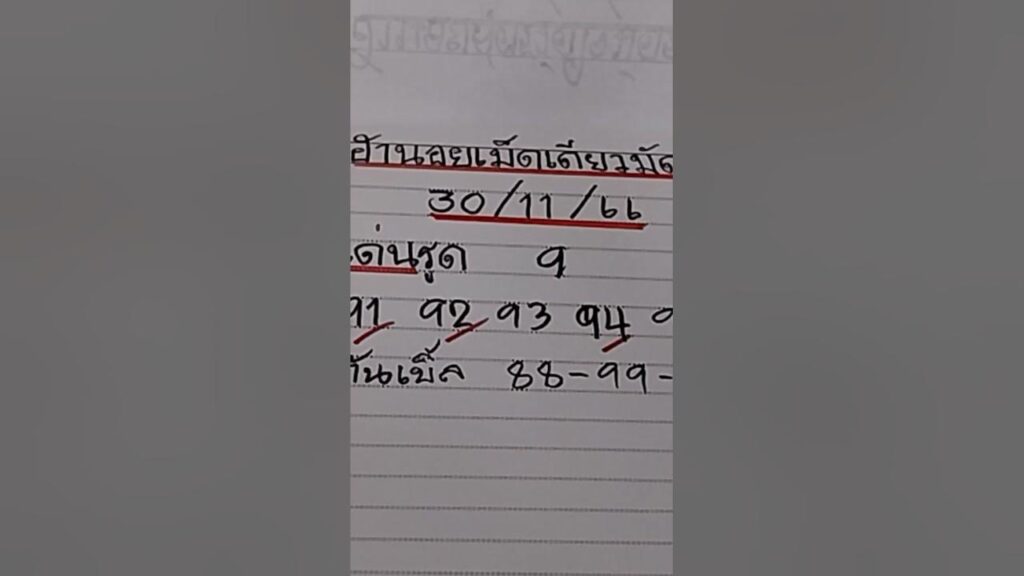 ฮานอยเม็ดเดียวมัด
30/11/66
เด่นรูด 9
91 92 93 94 9
กันเบิ้ล 88-99-